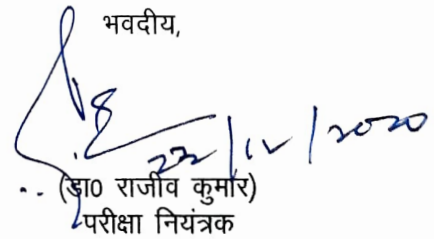 भवदीय,
22/12/2020
(डा0 राजीव कुमार)
परीक्षा नियंत्रक